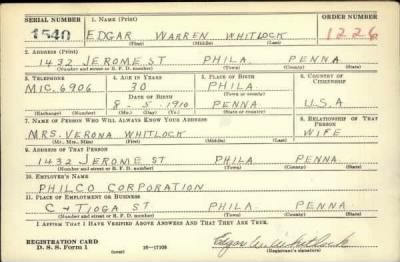 SERIAL NUMBER 1. NAME (Print) ORDER NUMBER
1540 EDGAR WARREN WHITLOCK 1226
(First) (Middle) (Last)
2. ADDRESS (Print)
1432 JEROME ST PHILA. PENNA
(Number and street or R. F. D. number) (Town) (County) (State)
3. TELEPHONE 4. AGE IN YEARS 5. PLACE OF BIRTH 6. COUNTRY OF CITIZENSHIP
MIC. 6906 30 PHILA
DATE OF BIRTH (Town or county)
8 - 5 - 1910 PENNA U.S.A
(Exchange) (Number) (Mo.) (Day) (Yr.) (State or country)
7. NAME OF PERSON WHO WILL ALWAYS KNOW YOUR ADDRESS 8. RELATIONSHIP OF THAT PERSON
MRS. VERONA WHITLOCK WIFE
(Mr., Mrs., Miss) (First) (Middle) (Last)
9. ADDRESS OF THAT PERSON
1432 JEROME ST PHILA PENNA.
(Number and street or R. F. D. number) (Town) (County) (State)
10. EMPLOYER'S NAME
PHILCO CORPORATION
11. PLACE OF EMPLOYMENT OR BUSINESS
C + TIOGA ST PHILA. PENNA.
(Number and street or R. F. D. number) (Town) (County) (State)
I AFFIRM THAT I HAVE VERIFIED ABOVE ANSWERS AND THAT THEY ARE TRUE.
REGISTRATION CARD
D. S. S. Form 1 (over) 16—17105 Edgar W. Whitlock
(Registrant's signature)